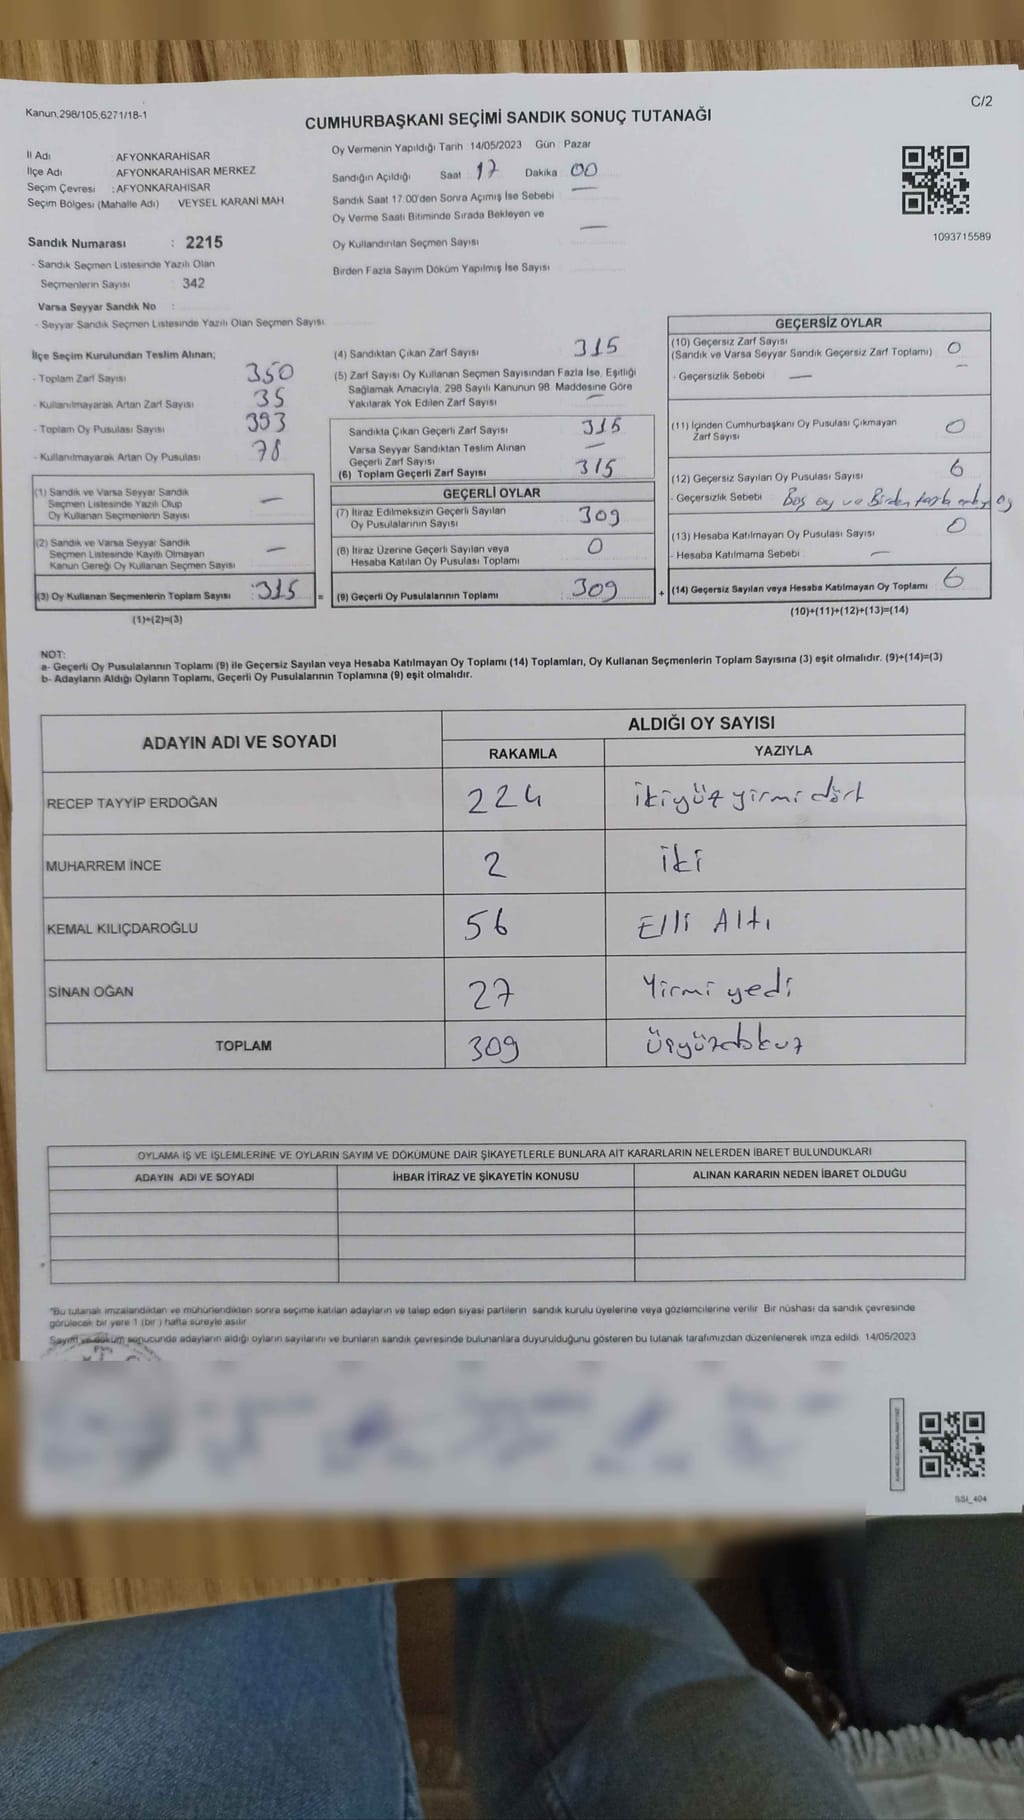 Kanun;298/105;6271/18-1
C/2
CUMHURBAŞKANI SEÇİMİ SANDIK SONUÇ TUTANAĞI
İl Adı : AFYONKARAHİSAR
İlçe Adı : AFYONKARAHİSAR MERKEZ
Seçim Çevresi : AFYONKARAHİSAR
Seçim Bölgesi (Mahalle Adı) VEYSEL KARANİ MAH
Sandık Numarası : 2215
- Sandık Seçmen Listesinde Yazılı Olan
Seçmenlerin Sayısı : 342
Varsa Seyyar Sandık No :
- Seyyar Sandık Seçmen Listesinde Yazılı Olan Seçmen Sayısı
Oy Vermenin Yapıldığı Tarih :14/05/2023 Gün Pazar
Sandığın Açıldığı Saat 17 Dakika 00
Sandık Saat 17:00'den Sonra Açımış İse Sebebi —
Oy Verme Saati Bitiminde Sırada Bekleyen ve
Oy Kullandırılan Seçmen Sayısı —
Birden Fazla Sayım Döküm Yapılmış İse Sayısı
1093715589
İlçe Seçim Kurulundan Teslim Alınan;
- Toplam Zarf Sayısı 350
- Kullanılmayarak Artan Zarf Sayısı 35
- Toplam Oy Pusulası Sayısı 393
- Kullanılmayarak Artan Oy Pusulası 78
(1) Sandık ve Varsa Seyyar Sandık
Seçmen Listesinde Yazılı Olup
Oy Kullanan Seçmenlerin Sayısı —
(2) Sandık ve Varsa Seyyar Sandık
Seçmen Listesinde Kayıtlı Olmayan
Kanun Gereği Oy Kullanan Seçmen Sayısı —
(3) Oy Kullanan Seçmenlerin Toplam Sayısı : 315 =
(1)+(2)=(3)
(4) Sandıktan Çıkan Zarf Sayısı 315
(5) Zarf Sayısı Oy Kullanan Seçmen Sayısından Fazla İse, Eşitliği
Sağlamak Amacıyla, 298 Sayılı Kanunun 98. Maddesine Göre
Yakılarak Yok Edilen Zarf Sayısı —
Sandıkta Çıkan Geçerli Zarf Sayısı 315
Varsa Seyyar Sandıktan Teslim Alınan
Geçerli Zarf Sayısı —
(6) Toplam Geçerli Zarf Sayısı 315
GEÇERLİ OYLAR
(7) İtiraz Edilmeksizin Geçerli Sayılan
Oy Pusulalarının Sayısı 309
(8) İtiraz Üzerine Geçerli Sayılan veya
Hesaba Katılan Oy Pusulası Toplamı 0
(9) Geçerli Oy Pusulalarının Toplamı : 309 +
GEÇERSİZ OYLAR
(10) Geçersiz Zarf Sayısı
(Sandık ve Varsa Seyyar Sandık Geçersiz Zarf Toplamı) 0
- Geçersizlik Sebebi —
(11) İçinden Cumhurbaşkanı Oy Pusulası Çıkmayan
Zarf Sayısı 0
(12) Geçersiz Sayılan Oy Pusulası Sayısı 6
- Geçersizlik Sebebi Boş oy ve Birden fazla
(13) Hesaba Katılmayan Oy Pusulası Sayısı 0
- Hesaba Katılmama Sebebi —
(14) Geçersiz Sayılan veya Hesaba Katılmayan Oy Toplamı 6
(10)+(11)+(12)+(13)=(14)
NOT:
a- Geçerli Oy Pusulalarının Toplamı (9) ile Geçersiz Sayılan veya Hesaba Katılmayan Oy Toplamı (14) Toplamları, Oy Kullanan Seçmenlerin Toplam Sayısına (3) eşit olmalıdır. (9)+(14)=(3)
b- Adayların Aldığı Oyların Toplamı, Geçerli Oy Pusulalarının Toplamına (9) eşit olmalıdır.
ADAYIN ADI VE SOYADI
ALDIĞI OY SAYISI
RAKAMLA YAZIYLA
RECEP TAYYİP ERDOĞAN 224 ikiyüz yirmi dört
MUHARREM İNCE 2 iki
KEMAL KILIÇDAROĞLU 56 Elli Altı
SİNAN OĞAN 27 Yirmi yedi
TOPLAM 309 üçyüzdokuz
OYLAMA İŞ VE İŞLEMLERİNE VE OYLARIN SAYIM VE DÖKÜMÜNE DAİR ŞİKAYETLERLE BUNLARA AİT KARARLARIN NELERDEN İBARET BULUNDUKLARI
ADAYIN ADI VE SOYADI İHBAR İTİRAZ VE ŞİKAYETİN KONUSU ALINAN KARARIN NEDEN İBARET OLDUĞU
*Bu tutanak imzalandıktan ve mühürlendikten sonra seçime katılan adayların ve talep eden siyasi partilerin sandık kurulu üyelerine veya gözlemcilerine verilir. Bir nüshası da sandık çevresinde
görülecek bir yere 1 (bir) hafta süreyle asılır.
Sayım ve döküm sonucunda adayların aldığı oyların sayılarını ve bunların sandık çevresinde bulunanlara duyurulduğunu gösteren bu tutanak tarafımızdan düzenlenerek imza edildi. 14/05/2023
SSI_404